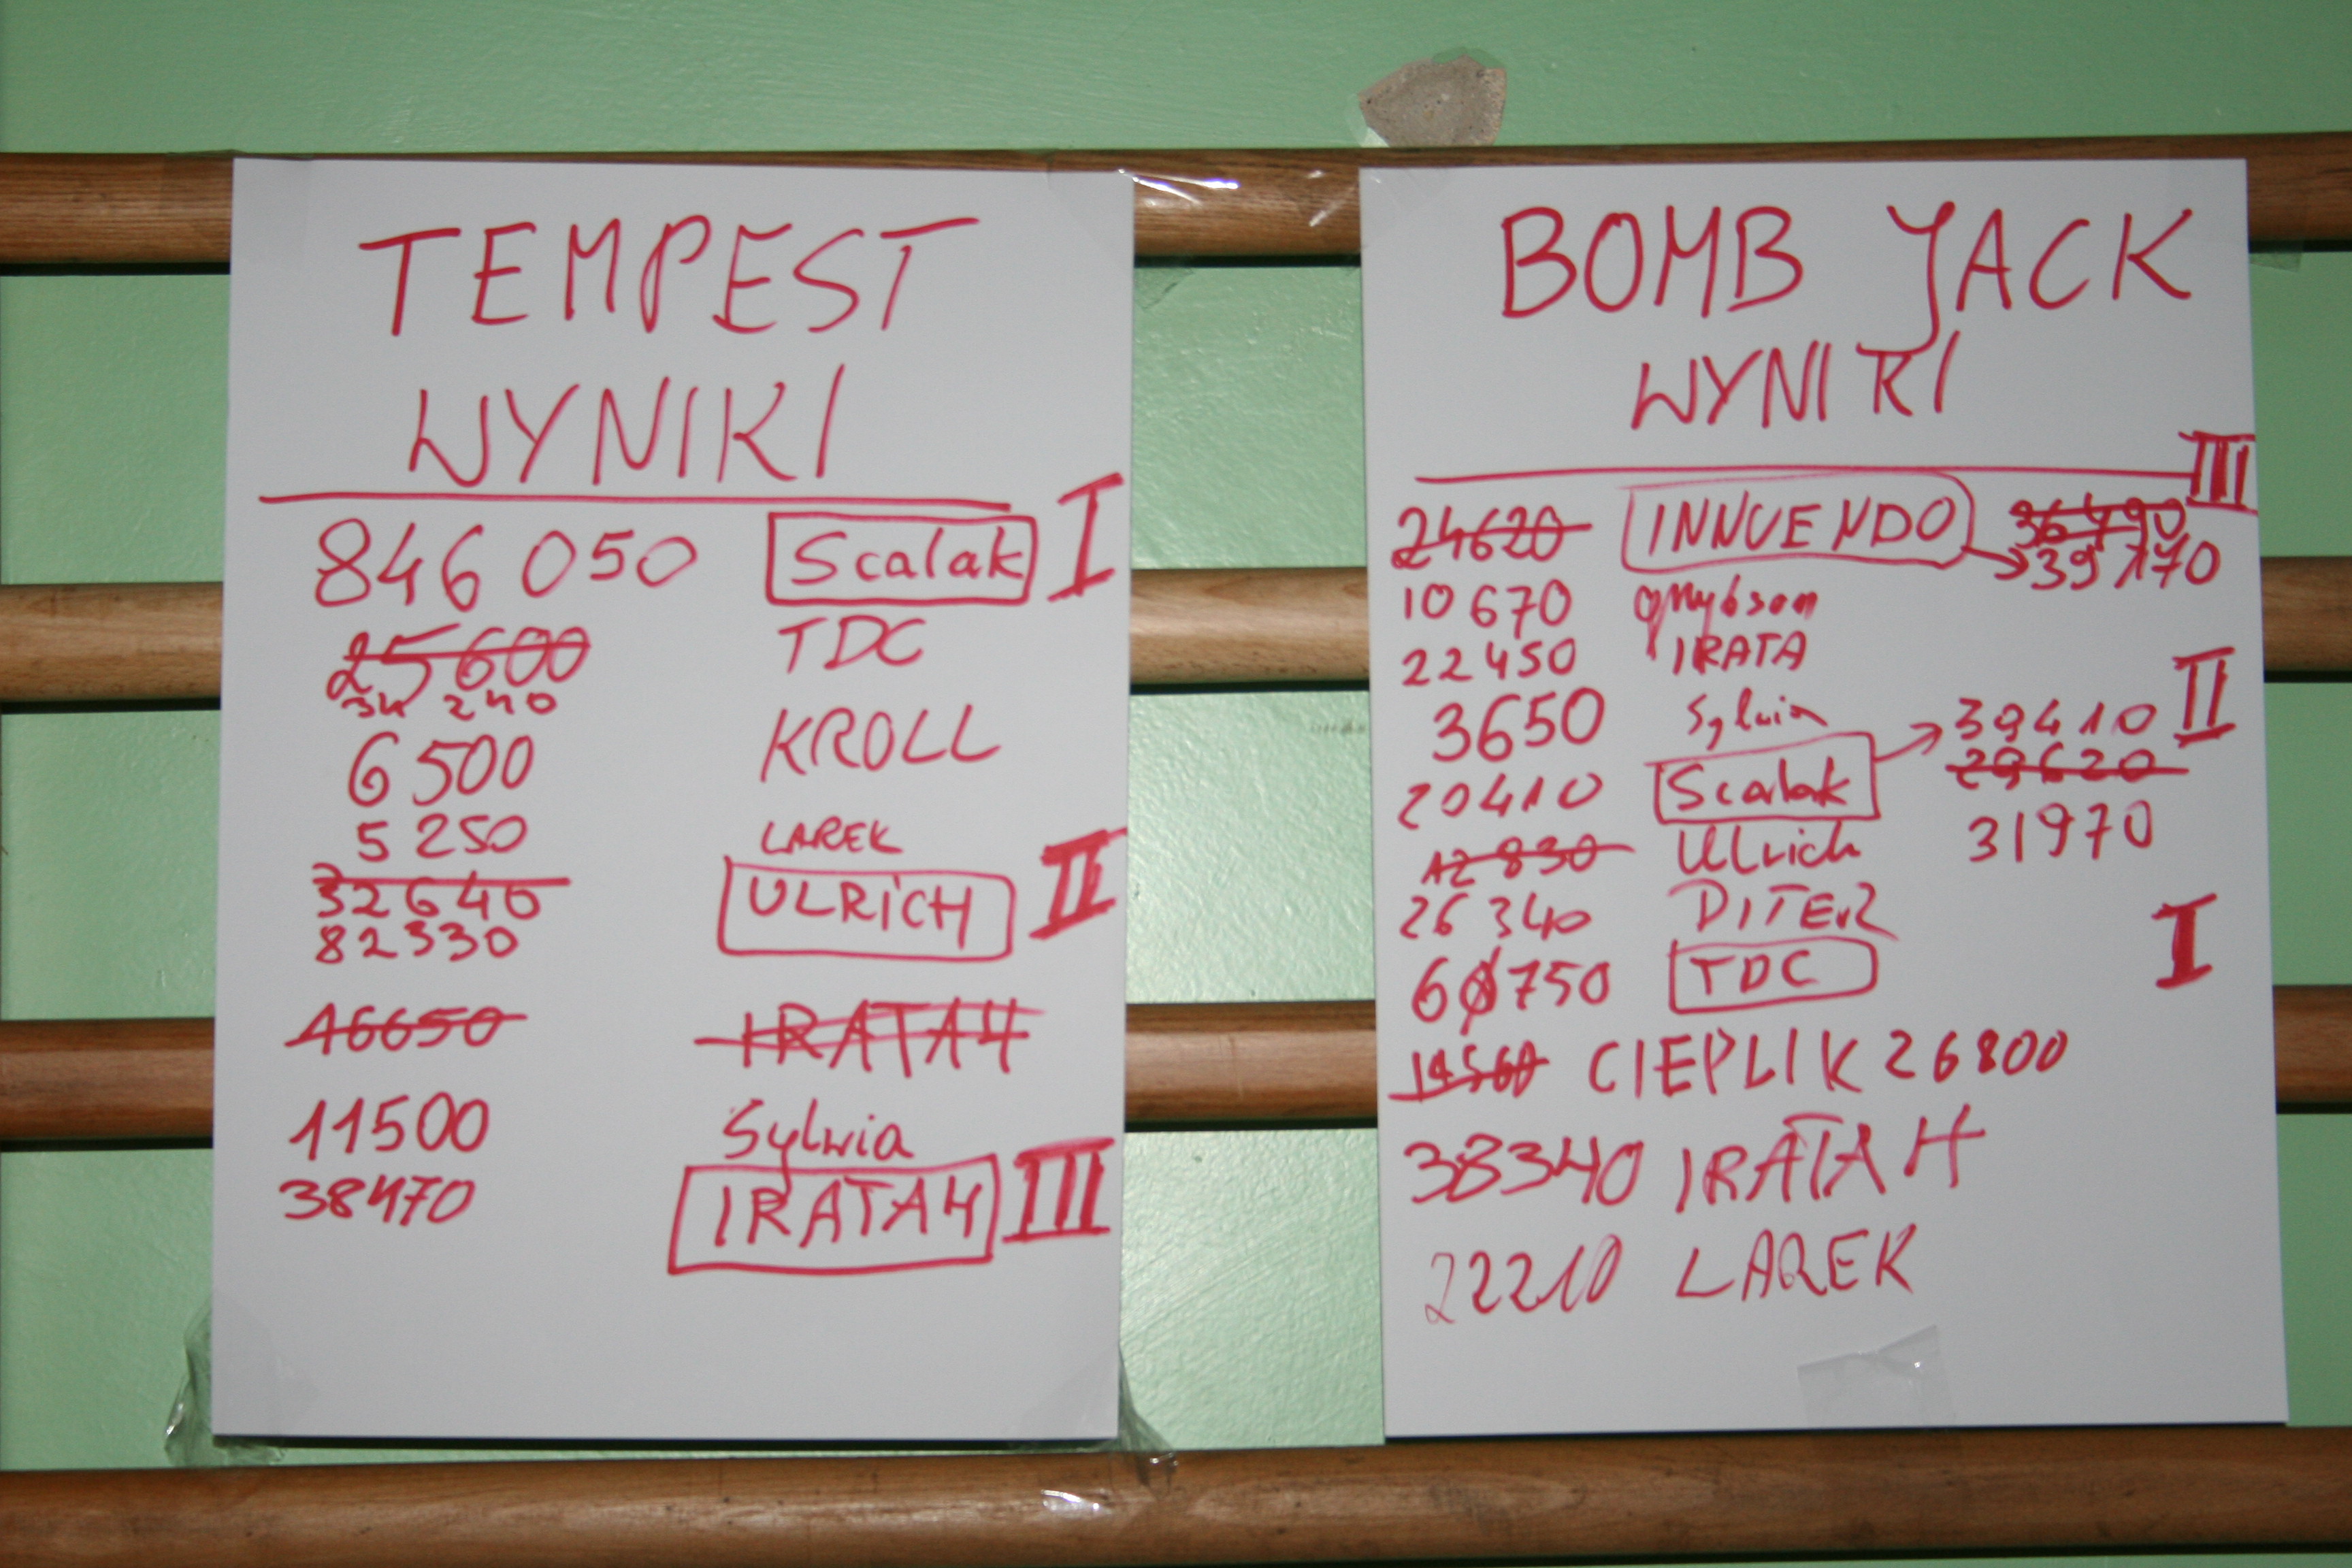 TEMPEST
WYNIKI
846 050 Scalak I
25 600 TDC
34 240
6 500 KROLL
5 250 LAREK
32640 ULRICH II
82330
16650 IRATA4
11500 Sylwia
38470 IRATA4 III
BOMB JACK
WYNIKI
III
24620 INNUENDO 36490
39170
10670
22450 IRATA
3650 Sylwia II
39410
20410 Scalak 29620
12830 Ulrich 31970
26340 DITER
60750 TDC I
14560 CIEPLIK 26800
38340 IRATA 4
22210 LAREK